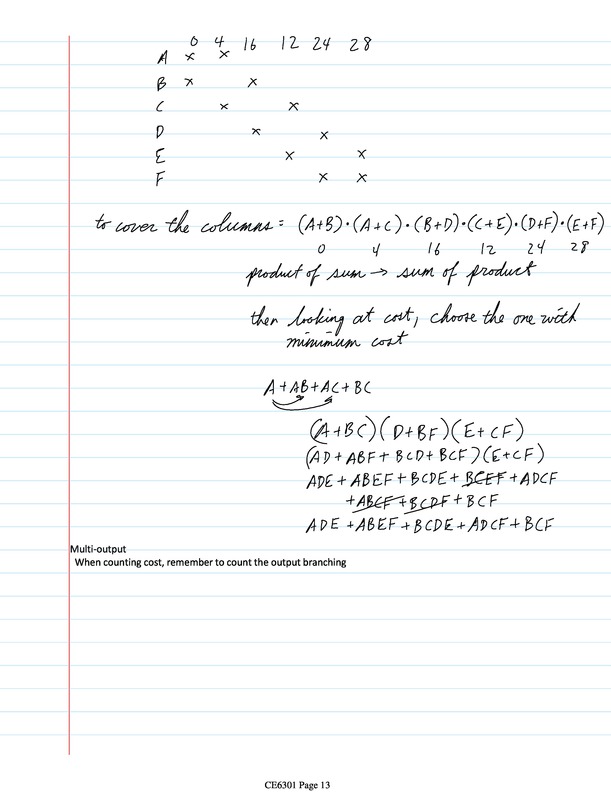 0 4 16 12 24 28
A x x
B x x
C x x
D x x
E x x
F x x
to cover the columns = (A+B)·(A+C)·(B+D)·(C+E)·(D+F)·(E+F)
0 4 16 12 24 28
product of sum → sum of product
then looking at cost, choose the one with
minimum cost
A+AB+AC+BC
(A+BC)(D+BF)(E+CF)
(AD+ABF+BCD+BCF)(E+CF)
ADE+ABEF+BCDE+BCEF+ADCF
+ABCF+BCDF+BCF
ADE+ABEF+BCDE+ADCF+BCF
Multi-output
When counting cost, remember to count the output branching
CE6301 Page 13